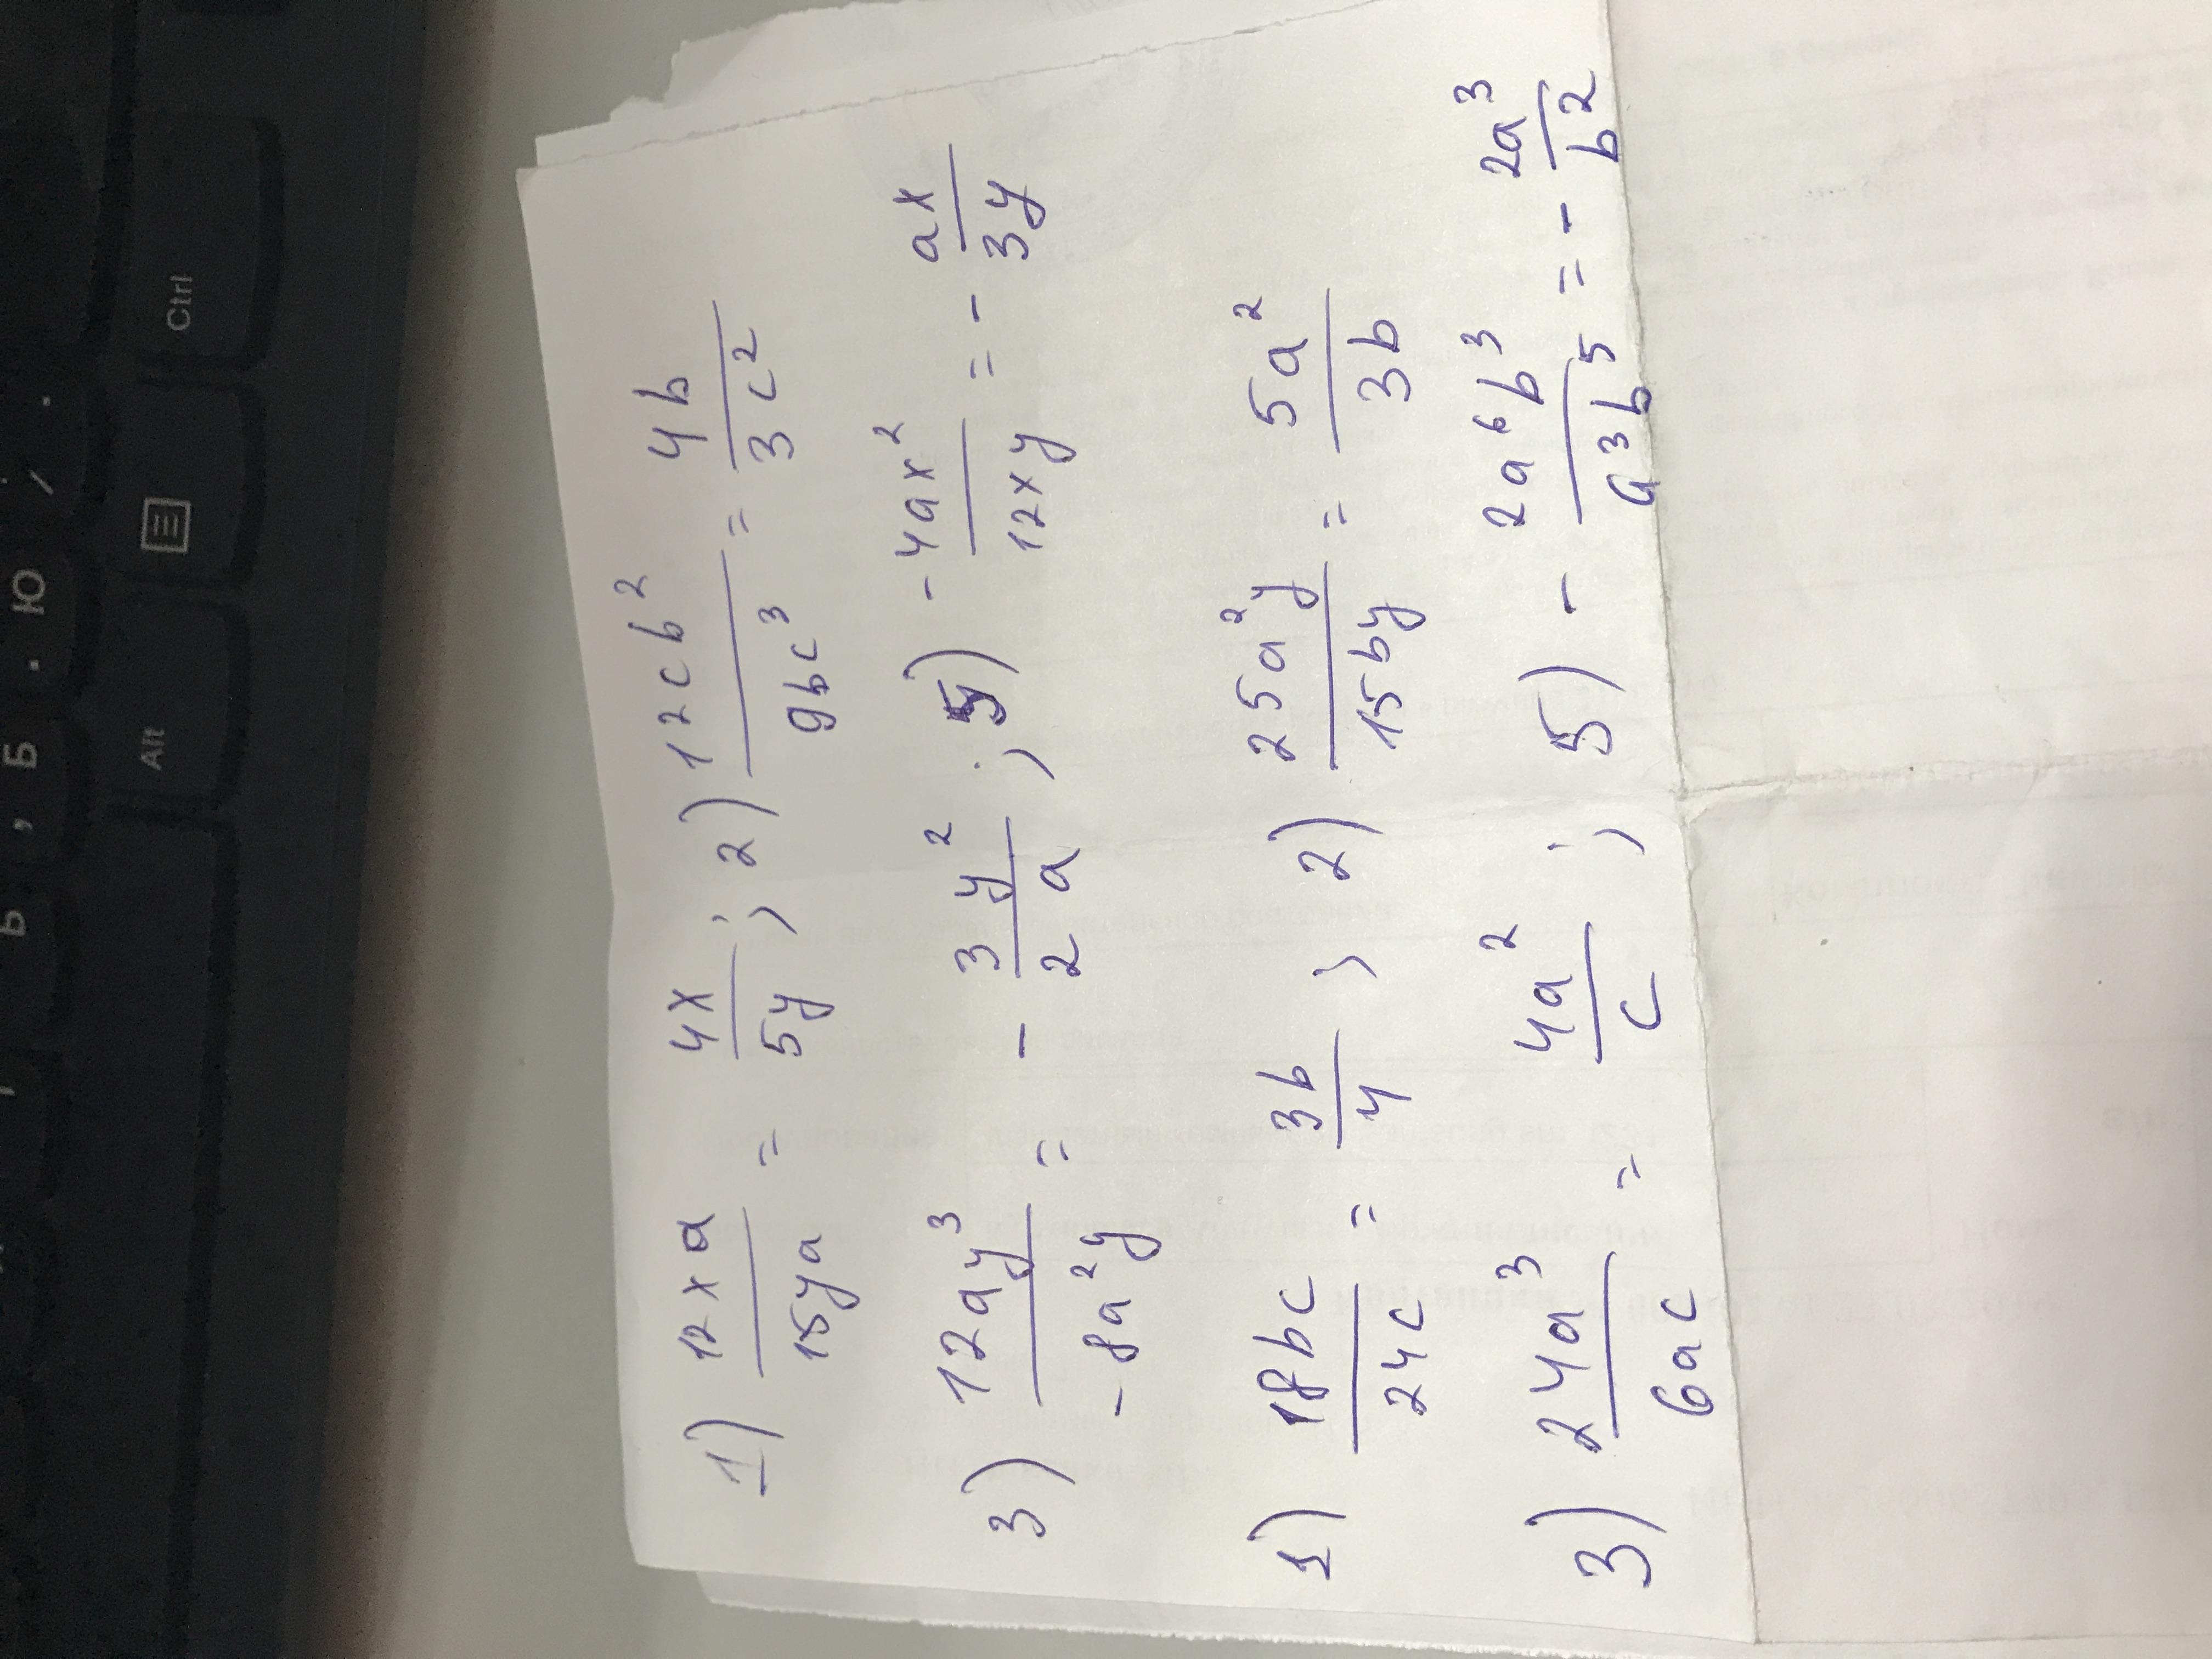 1) 12xa/15ya = 4x/5y ; 2) 12cb²/9bc³ = 4b/3c²
3) 12ay³/-8a²y = - 3y²/2a ; 5) - 4ax²/12xy = - ax/3y
1) 18bc/24c = 3b/4 ; 2) 25a²y/15by = 5a²/3b
3) 24a³/6ac = 4a²/c ; 5) - 2a⁶b³/a³b⁵ = - 2a³/b²
Ctrl
Alt
Ю
Б
Ь